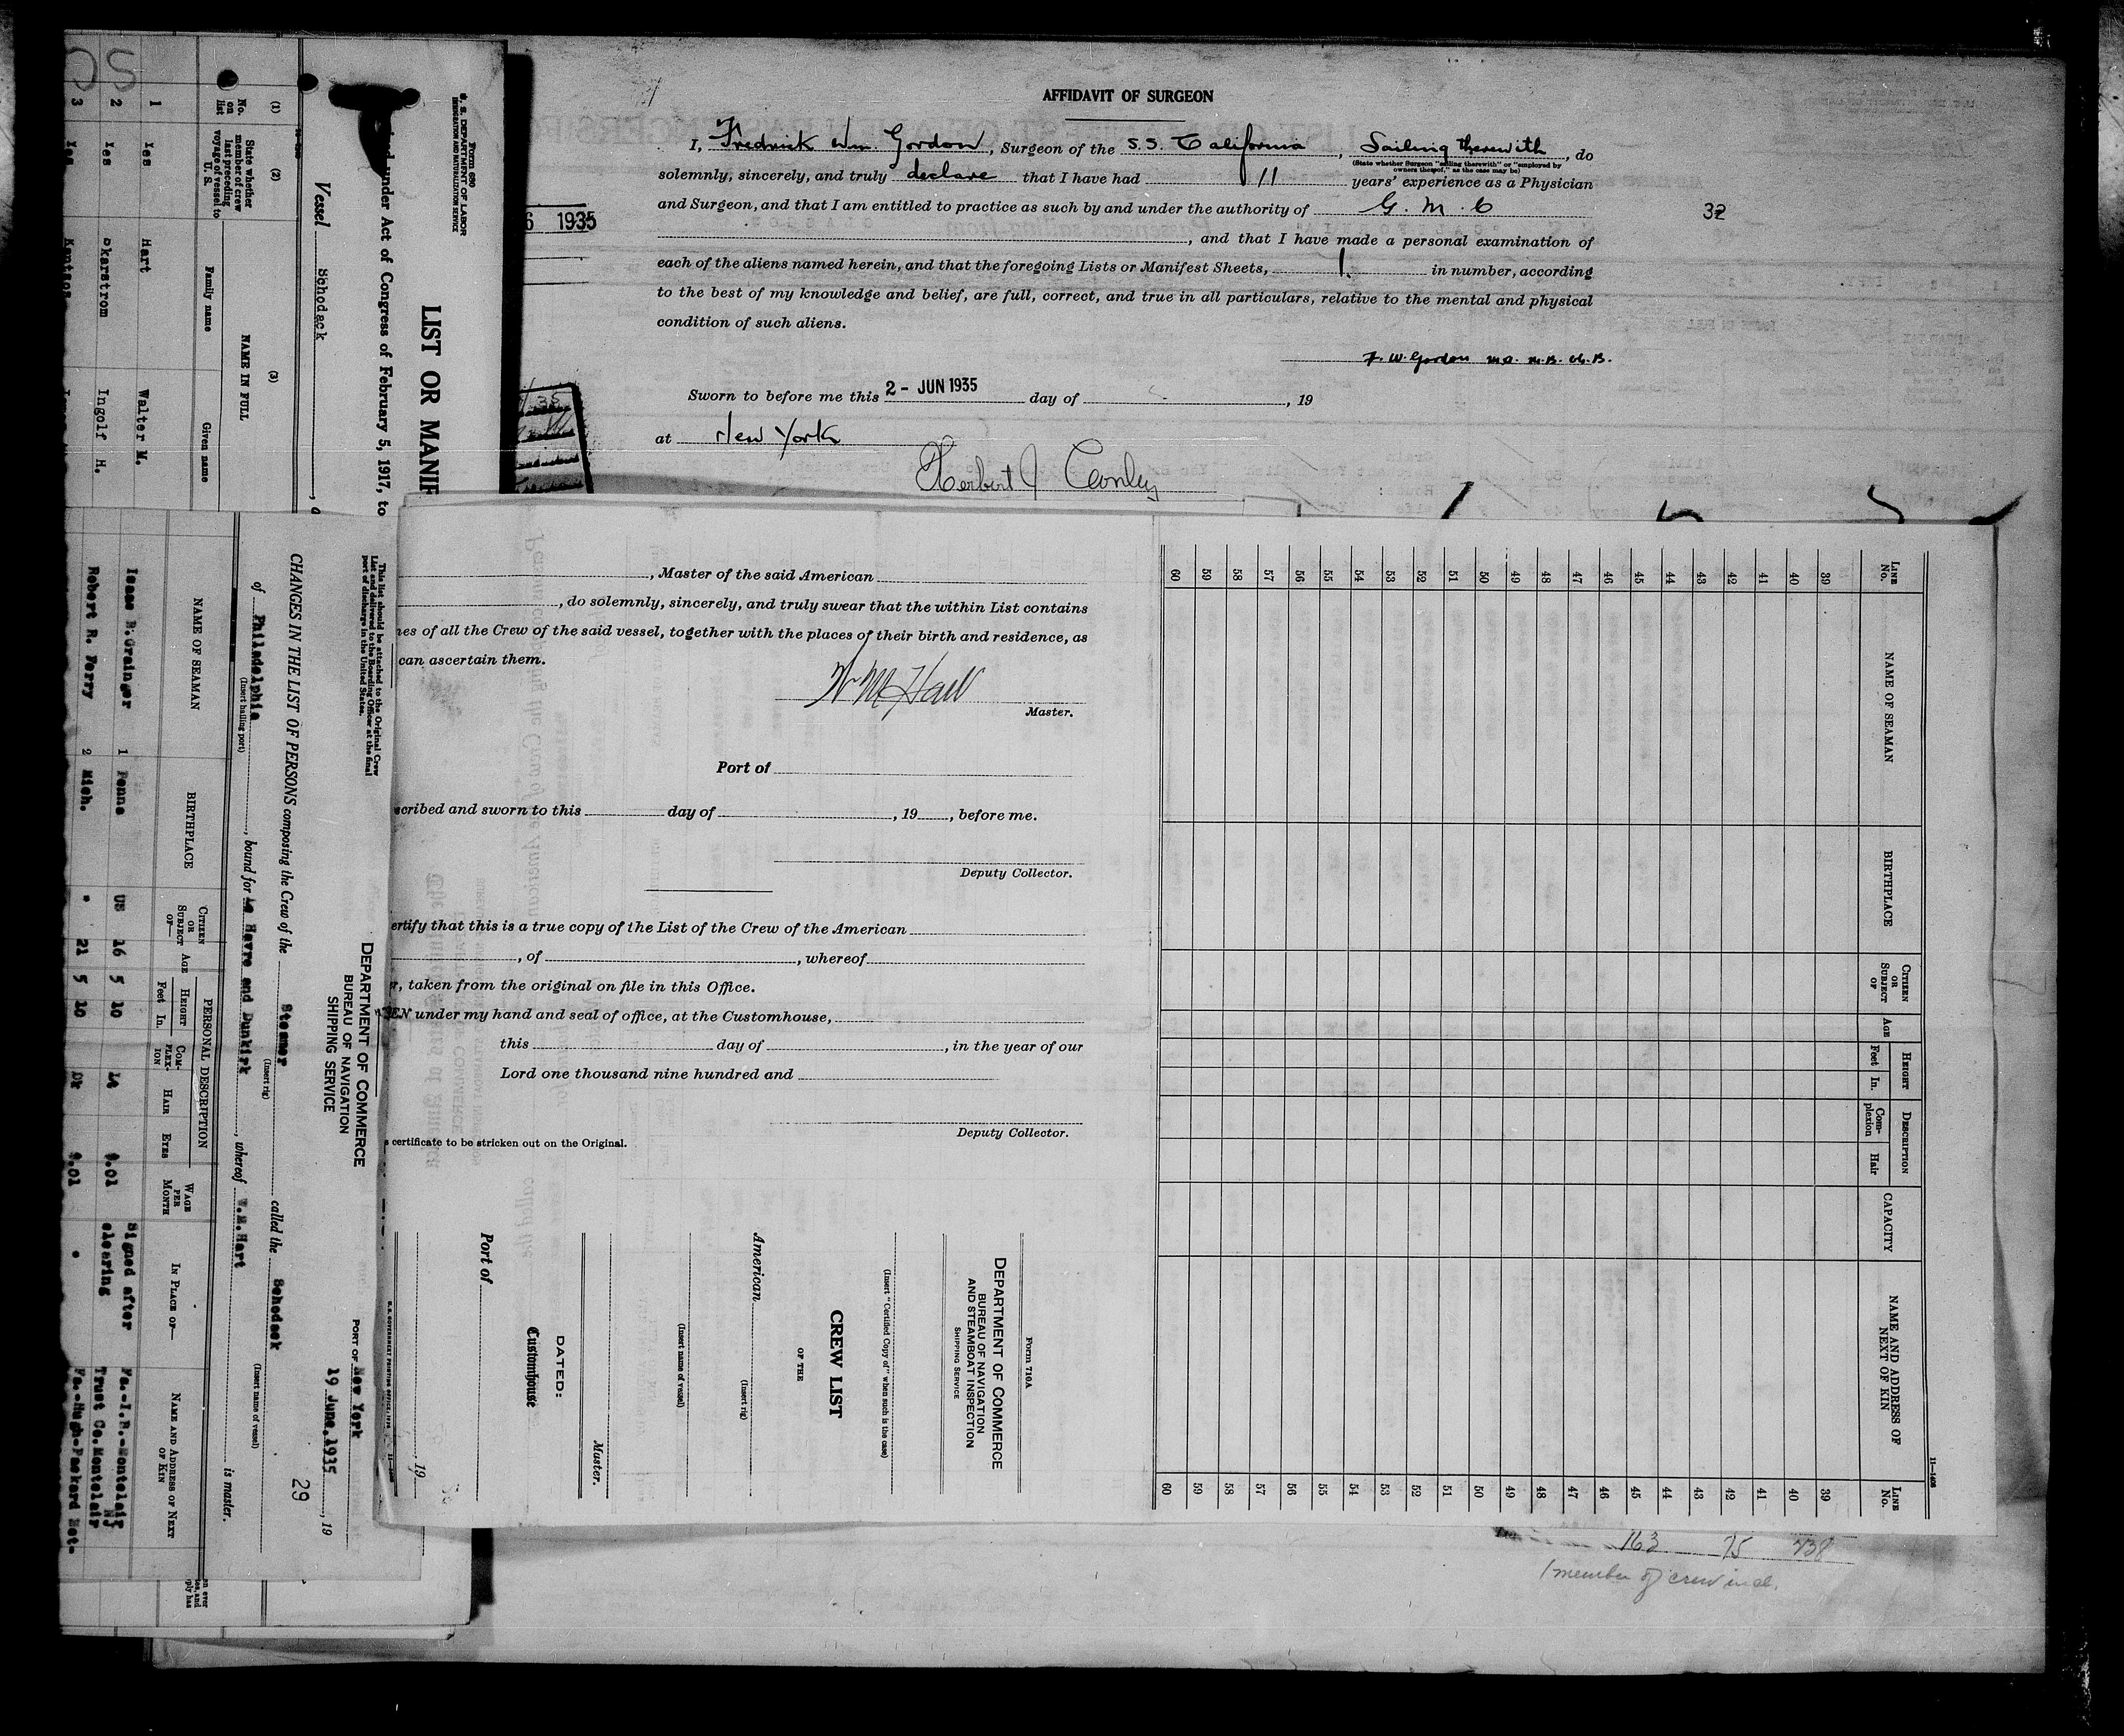 AFFIDAVIT OF SURGEON
I, Fredrick Wm. Gordon, Surgeon of the S.S. California, Sailing therewith, do
(State whether Surgeon "sailing therewith" or "employed by owners thereof," as the case may be)
solemnly, sincerely, and truly declare that I have had 11 years' experience as a Physician
and Surgeon, and that I am entitled to practice as such by and under the authority of G. M. C
, and that I have made a personal examination of
each of the aliens named herein, and that the foregoing Lists or Manifest Sheets, 1. in number, according
to the best of my knowledge and belief, are full, correct, and true in all particulars, relative to the mental and physical
condition of such aliens.
F. W. Gordon M.B. Ch.B.
Sworn to before me this 2 - JUN 1935 day of , 19
at New York
Herbert J Conley
32
6 1935
Form 680
U. S. DEPARTMENT OF LABOR
IMMIGRATION AND NATURALIZATION SERVICE
LIST OR MANIF
under Act of Congress of February 5, 1917, to
Vessel Schodack
(1) (2) (3)
No. on list
State whether member of crew last preceding voyage of vessel to U. S.
NAME IN FULL
Family name Given name
1 Yes Hart Walter M.
2 Yes Ekarstrom Ingolf H.
3 Yes
This list should be attached to the Original Crew
List and delivered to the Boarding Officer at the final
part of discharge in the United States.
DEPARTMENT OF COMMERCE
BUREAU OF NAVIGATION
SHIPPING SERVICE
PORT OF New York
19 June, 1935, 19
29
CHANGES IN THE LIST OF PERSONS composing the Crew of the Steamer called the Schodack
(Insert rig) (Insert name of vessel)
of Philadelphia, bound for Le Havre and Dunkirk, whereof W.M.Hart is master.
(Insert hailing port)
NAME OF SEAMAN
BIRTHPLACE
CITIZEN OR SUBJECT OF—
PERSONAL DESCRIPTION
AGE
HEIGHT
Feet In.
COMPLEXION
HAIR
EYES
WAGE PER MONTH
IN PLACE OF—
NAME AND ADDRESS OF NEXT OF KIN
1 Penna US 16 5 10 Lt $.01 Signed after clearing Fa.-I.R.-Montclair NJ
Trust Co. Montclair
Robert R. Ferry 2 Mich. " 21 5 10 Dk $.01 " Fa.-Hugh-Packard
, Master of the said American
, do solemnly, sincerely, and truly swear that the within List contains
nes of all the Crew of the said vessel, together with the places of their birth and residence, as
can ascertain them.
Master.
Port of
scribed and sworn to this day of , 19 , before me.
Deputy Collector.
ertify that this is a true copy of the List of the Crew of the American
, of , whereof
r, taken from the original on file in this Office.
EN under my hand and seal of office, at the Customhouse,
this day of , in the year of our
Lord one thousand nine hundred and
Deputy Collector.
certificate to be stricken out on the Original.
Form 710A
DEPARTMENT OF COMMERCE
BUREAU OF NAVIGATION
AND STEAMBOAT INSPECTION
SHIPPING SERVICE
(Insert "Certified Copy of" when such is the case)
CREW LIST
OF THE
American
(Insert rig)
(Insert name of vessel)
Master.
DATED:
Customhouse
Port of
, 19
11—1408
LINE No.
NAME OF SEAMAN
BIRTHPLACE
CITIZEN OR SUBJECT OF
AGE
HEIGHT
Feet In.
DESCRIPTION
Complexion Hair
CAPACITY
NAME AND ADDRESS OF NEXT OF KIN
LINE No.
39 39
40 40
41 41
42 42
43 43
44 44
45 45
46 46
47 47
48 48
49 49
50 50
51 51
52 52
53 53
54 54
55 55
56 56
57 57
58 58
59 59
60 60
163 75 738
1 member of crew incl.